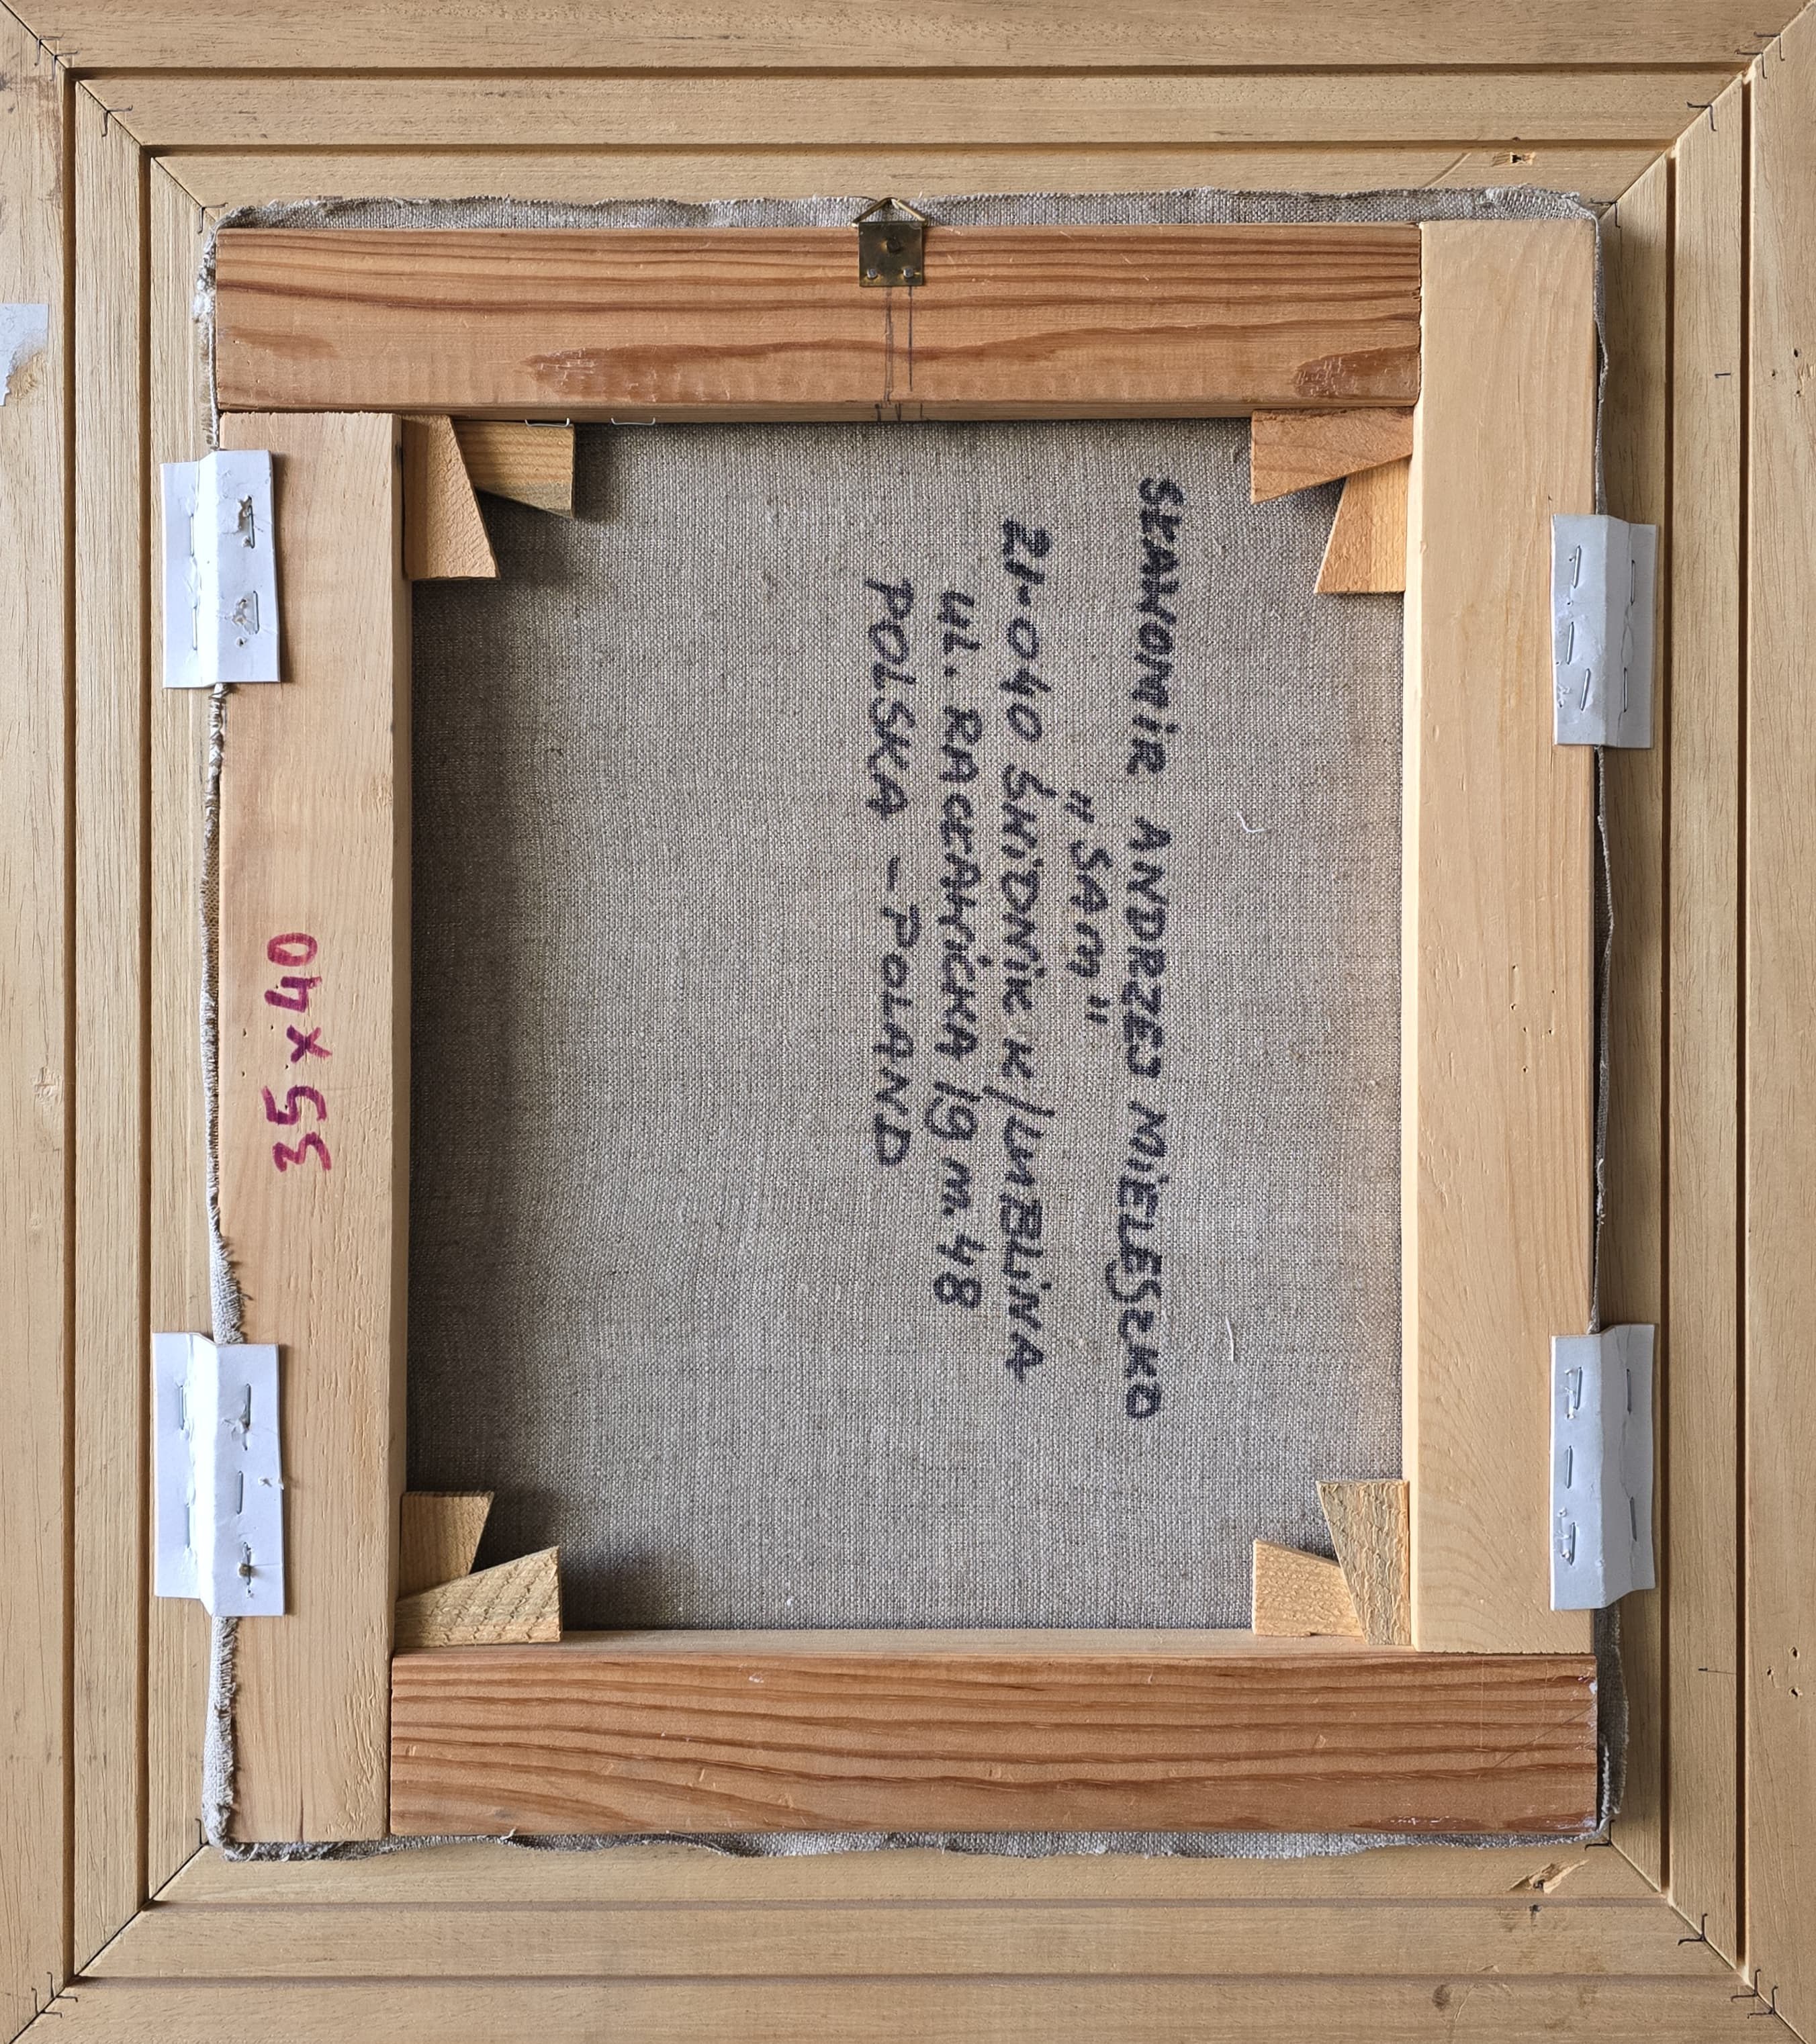 SŁAWOMiR ANDRZEJ MiELESZKO
"SAM"
21-040 ŚWiDNiK K/LUBLiNA
UL. RACŁAWiCKA 19 m. 48
POLSKA - POLAND
35 x 40